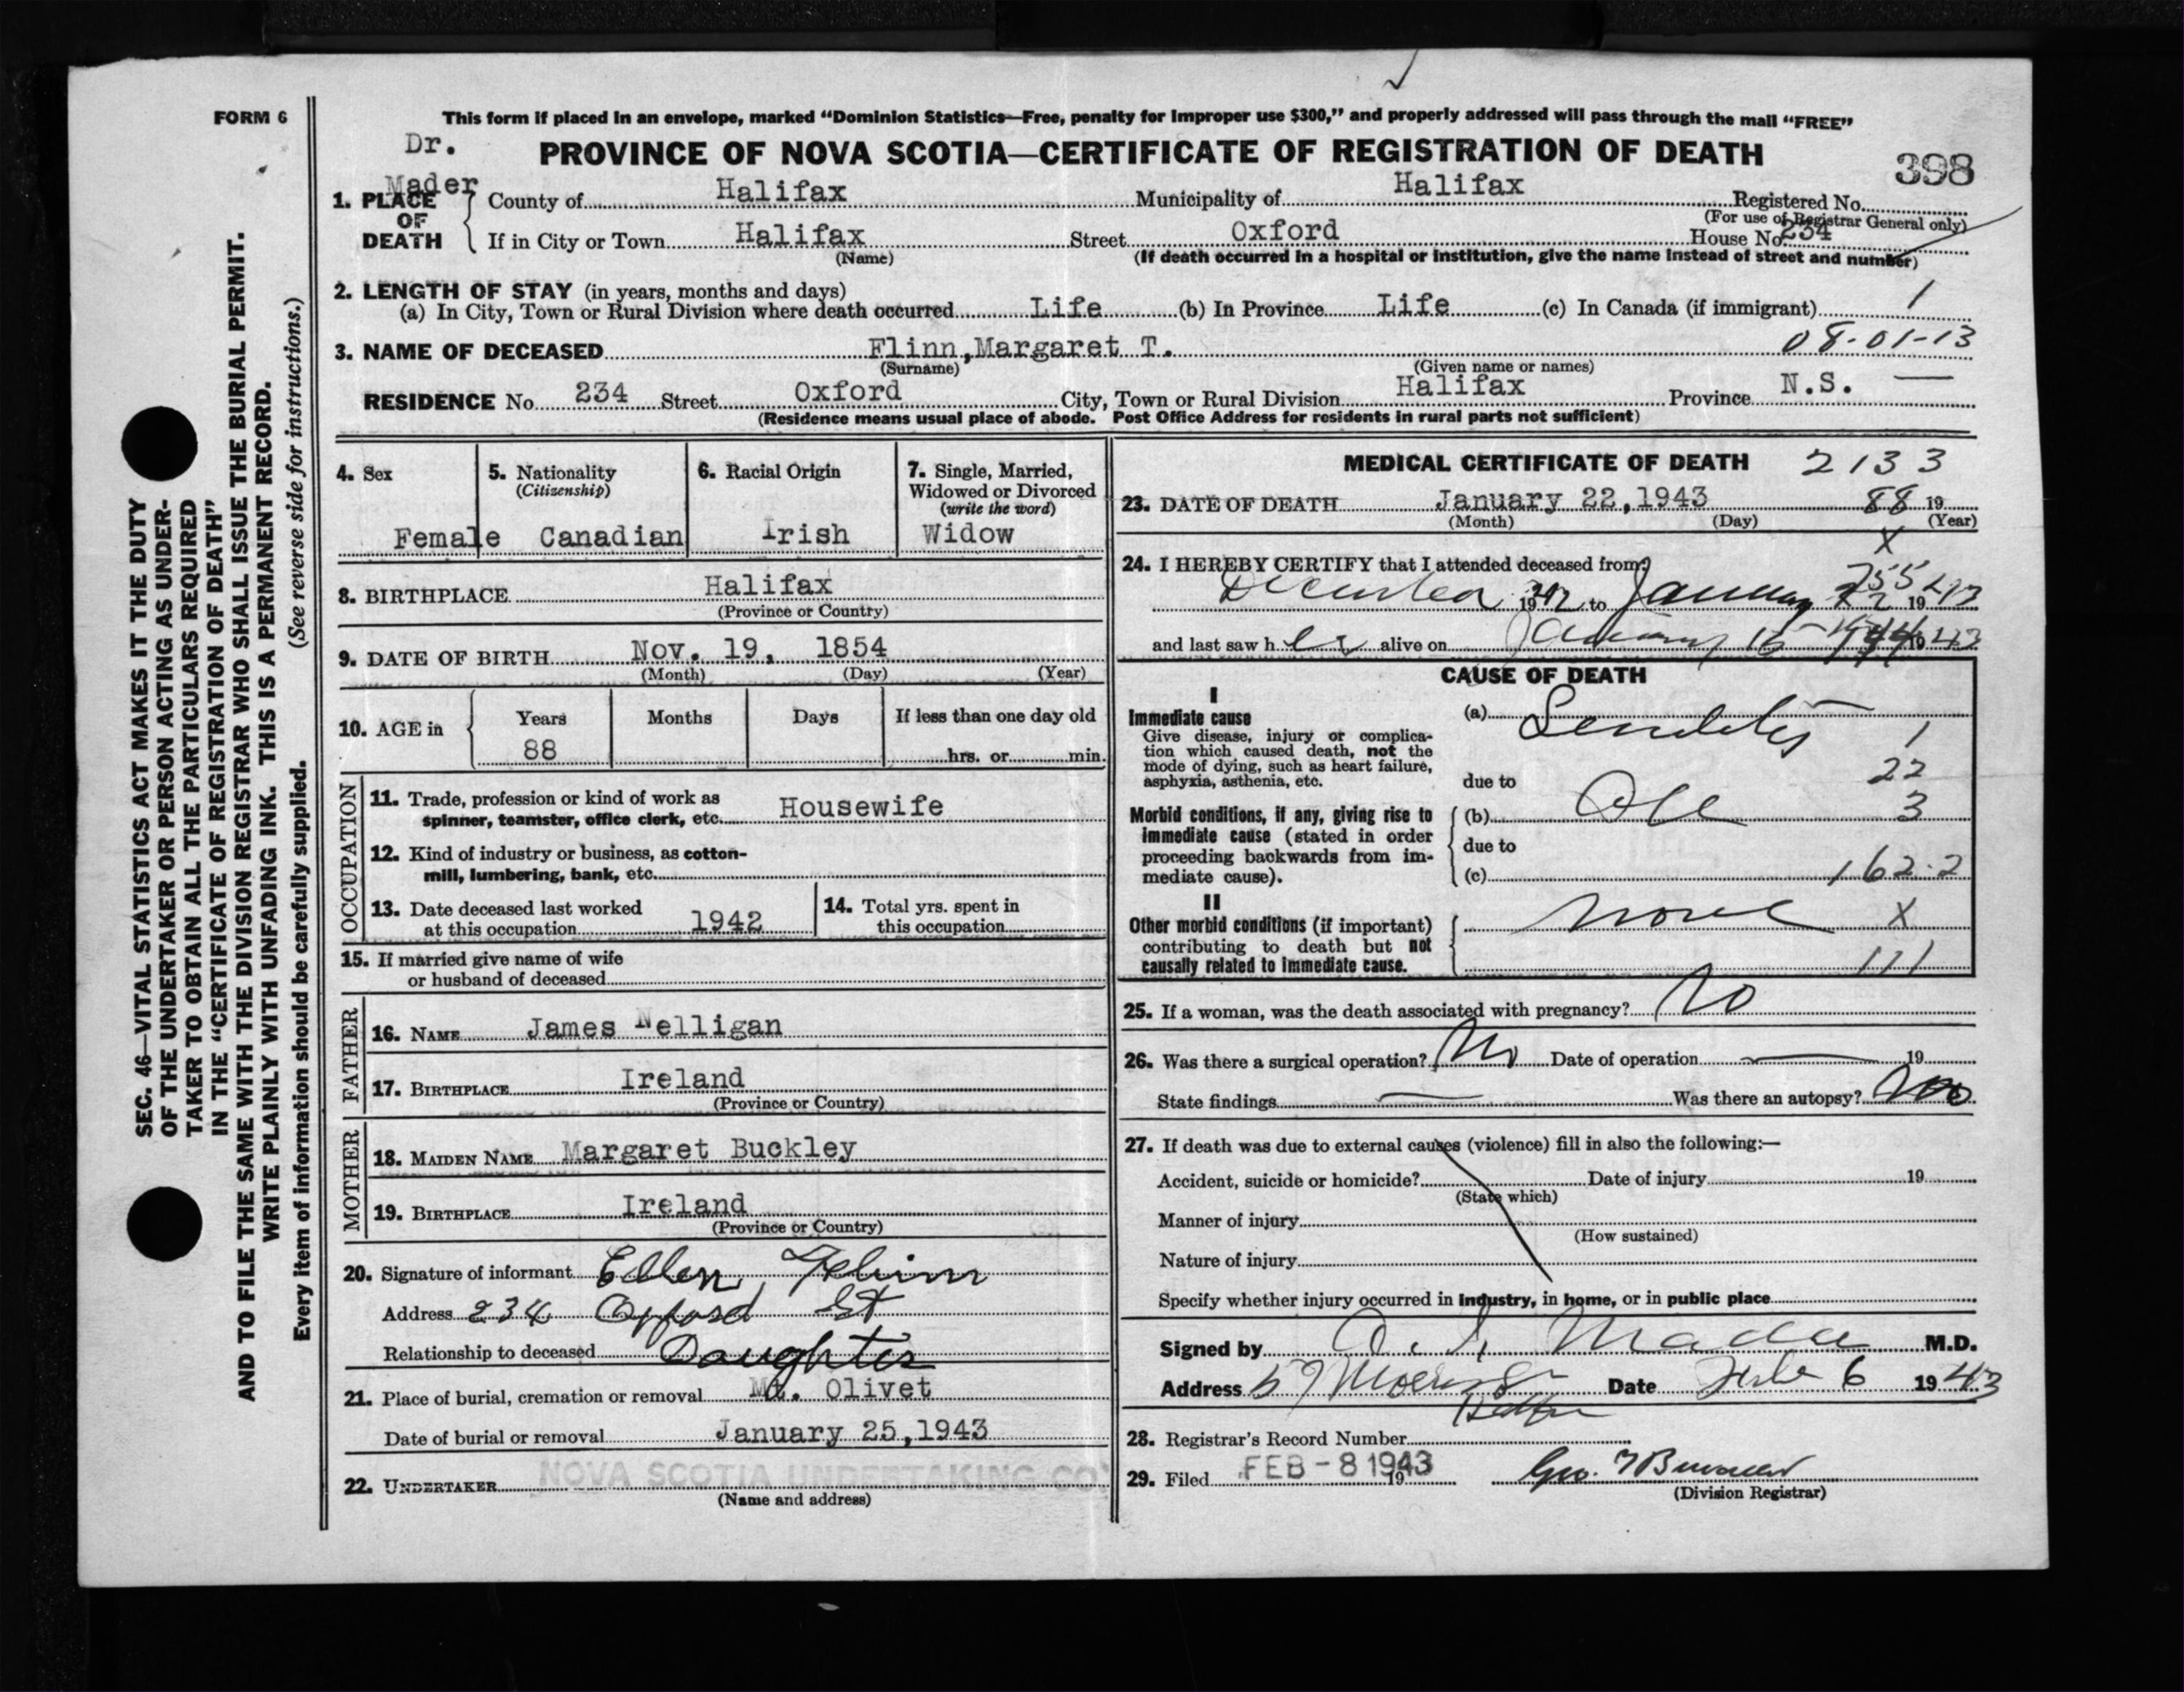 FORM 6
This form if placed in an envelope, marked “Dominion Statistics—Free, penalty for improper use $300,” and properly addressed will pass through the mail “FREE”
Dr.
Mader
PROVINCE OF NOVA SCOTIA—CERTIFICATE OF REGISTRATION OF DEATH
398
1. PLACE OF DEATH
County of Halifax Municipality of Halifax Registered No.
(For use of Registrar General only)
If in City or Town Halifax Street Oxford House No. 234
(Name) (If death occurred in a hospital or institution, give the name instead of street and number)
2. LENGTH OF STAY (in years, months and days)
(a) In City, Town or Rural Division where death occurred Life (b) In Province Life (c) In Canada (if immigrant) 1
3. NAME OF DECEASED Flinn, Margaret T. 08-01-13
(Surname) (Given name or names)
RESIDENCE No. 234 Street Oxford City, Town or Rural Division Halifax Province N.S. —
(Residence means usual place of abode. Post Office Address for residents in rural parts not sufficient)
SEC. 46—VITAL STATISTICS ACT MAKES IT THE DUTY
OF THE UNDERTAKER OR PERSON ACTING AS UNDER-
TAKER TO OBTAIN ALL THE PARTICULARS REQUIRED
IN THE “CERTIFICATE OF REGISTRATION OF DEATH”
AND TO FILE THE SAME WITH THE DIVISION REGISTRAR WHO SHALL ISSUE THE BURIAL PERMIT.
WRITE PLAINLY WITH UNFADING INK. THIS IS A PERMANENT RECORD.
Every item of information should be carefully supplied. (See reverse side for instructions.)
4. Sex
Female
5. Nationality
(Citizenship)
Canadian
6. Racial Origin
Irish
7. Single, Married,
Widowed or Divorced
(write the word)
Widow
8. BIRTHPLACE Halifax
(Province or Country)
9. DATE OF BIRTH Nov. 19, 1854
(Month) (Day) (Year)
10. AGE in
Years Months Days If less than one day old
88 hrs. or min.
OCCUPATION
11. Trade, profession or kind of work as
spinner, teamster, office clerk, etc. Housewife
12. Kind of industry or business, as cotton-
mill, lumbering, bank, etc.
13. Date deceased last worked
at this occupation 1942
14. Total yrs. spent in
this occupation
15. If married give name of wife
or husband of deceased
FATHER
16. NAME James Nelligan
17. BIRTHPLACE Ireland
(Province or Country)
MOTHER
18. MAIDEN NAME Margaret Buckley
19. BIRTHPLACE Ireland
(Province or Country)
20. Signature of informant Ellen Flinn
Address 234 Oxford St
Relationship to deceased Daughter
21. Place of burial, cremation or removal Mt. Olivet
Date of burial or removal January 25, 1943
22. UNDERTAKER NOVA SCOTIA UNDERTAKING CO'
(Name and address)
MEDICAL CERTIFICATE OF DEATH 2133
23. DATE OF DEATH January 22, 1943 88 19
(Month) (Day) (Year)
X
24. I HEREBY CERTIFY that I attended deceased from:
December 1942 to January 22 1943
and last saw her alive on January 16 1943
CAUSE OF DEATH
I
Immediate cause
Give disease, injury or complica-
tion which caused death, not the
mode of dying, such as heart failure,
asphyxia, asthenia, etc.
(a) Senility 1
due to 22
Morbid conditions, if any, giving rise to
immediate cause (stated in order
proceeding backwards from im-
mediate cause).
(b) 3
due to
(c) 162.2
II
Other morbid conditions (if important)
contributing to death but not
causally related to immediate cause.
none X
111
25. If a woman, was the death associated with pregnancy? No
26. Was there a surgical operation? No Date of operation — 19
State findings — Was there an autopsy? No
27. If death was due to external causes (violence) fill in also the following:—
Accident, suicide or homicide? Date of injury 19
(State which)
Manner of injury
(How sustained)
Nature of injury
Specify whether injury occurred in industry, in home, or in public place
Signed by Mader M.D.
Address 57 Date Feb 6 1943
28. Registrar's Record Number
29. Filed FEB - 8 1943 19 Geo.
(Division Registrar)